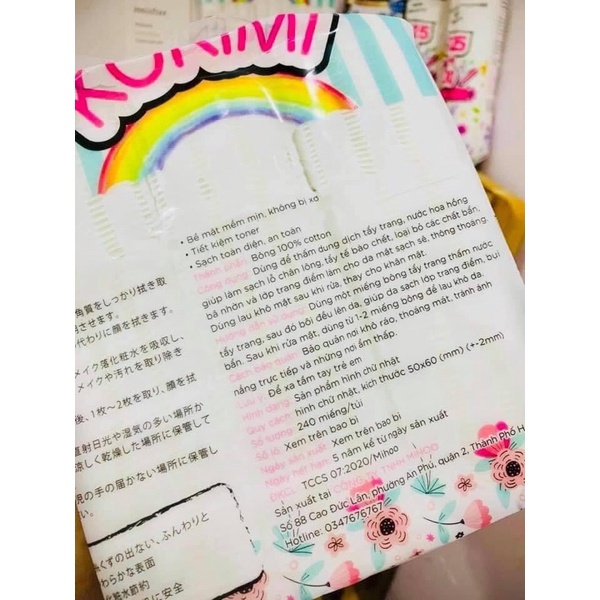 KORIMI
• Bề mặt mềm mịn, không bị xơ
• Tiết kiệm toner
• Sạch toàn diện, an toàn
Thành phần: Bông 100% cotton
Công dụng: Dùng để thấm dung dịch tẩy trang, nước hoa hồng
giúp làm sạch lỗ chân lông, tẩy tế bào chết, loại bỏ các chất bẩn,
bã nhờn và lớp trang điểm làm cho da mặt sạch sẽ, thông thoáng.
Dùng lau khô mặt sau khi rửa, thay cho khăn mặt.
Hướng dẫn sử dụng: Dùng một miếng bông tẩy trang thấm nước
tẩy trang, sau đó bôi đều lên da, giúp da sạch lớp trang điểm, bụi
bẩn. Sau khi rửa mặt, dùng từ 1-2 miếng bông để lau khô da.
Cách bảo quản: Bảo quản nơi khô ráo, thoáng mát, tránh ánh
nắng trực tiếp và những nơi ẩm thấp.
Lưu ý: Để xa tầm tay trẻ em
Hình dạng: Sản phẩm hình chữ nhật
Quy cách: hình chữ nhật, kích thước 50x60 (mm) (+-2mm)
Số lượng: 240 miếng/túi
Số lô: Xem trên bao bì
Ngày sản xuất: Xem trên bao bì
Ngày hết hạn: 5 năm kể từ ngày sản xuất
ĐKCL: TCCS 07:2020/Mihoo
Sản xuất tại CÔNG TY TNHH MIHOO
Số 88 Cao Đức Lân, phường An Phú, quận 2, Thành Phố H
Hotline: 0347676767
角質をしっかり拭き取
させます。
代わりに顔を拭きます。
メイク落化粧水を吸収し、
メイクや汚れを取り除き
後、1枚〜2枚を取り、顔を拭
直射日光や湿気の多い場所か
涼しく乾燥した場所に保管して
児の手の届かない場所に保管し
い。
くずの出ない、ふんわりと
わらかな表面
化粧水節約
に安全